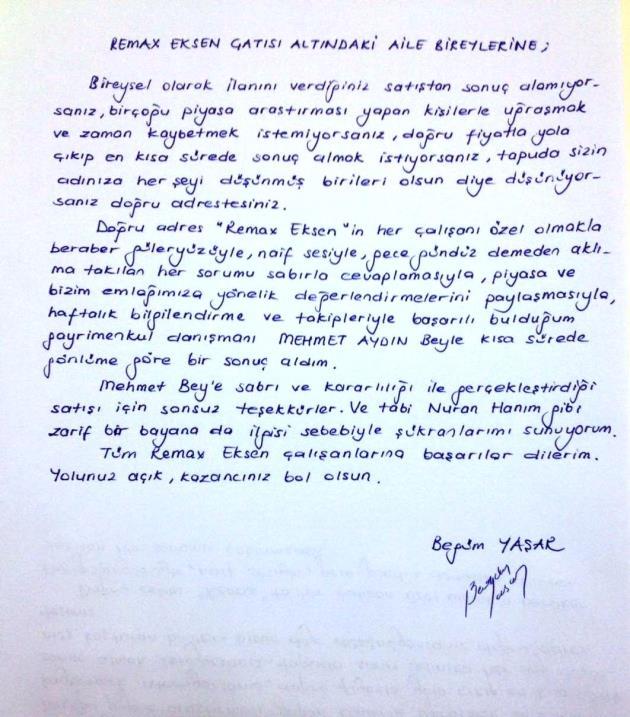 REMAX EKSEN ÇATISI ALTINDAKİ AİLE BİREYLERİNE;
Bireysel olarak ilanını verdiğiniz satıştan sonuç alamıyor-
sanız, birçoğu piyasa araştırması yapan kişilerle uğraşmak
ve zaman kaybetmek istemiyorsanız, doğru fiyatla yola
çıkıp en kısa sürede sonuç almak istiyorsanız, tapuda sizin
adınıza her şeyi düşünmüş birileri olsun diye düşünüyor-
sanız doğru adrestesiniz.
Doğru adres "Remax Eksen"in her çalışanı özel olmakla
beraber güleryüzüyle, naif sesiyle, gece gündüz demeden aklı-
ma takılan her sorumu sabırla cevaplamasıyla, piyasa ve
bizim emlağımıza yönelik değerlendirmelerini paylaşmasıyla,
haftalık bilgilendirme ve takipleriyle başarılı bulduğum
gayrimenkul danışmanı MEHMET AYDIN Beyle kısa sürede
gönlüme göre bir sonuç aldım.
Mehmet Bey'e sabrı ve kararlılığı ile gerçekleştirdiği
satışı için sonsuz teşekkürler. Ve tabi Nuran Hanım gibi
zarif bir bayana da ilgisi sebebiyle şükranlarımı sunuyorum.
Tüm Remax Eksen çalışanlarına başarılar dilerim.
Yolunuz açık, kazancınız bol olsun.
Begüm YAŞAR